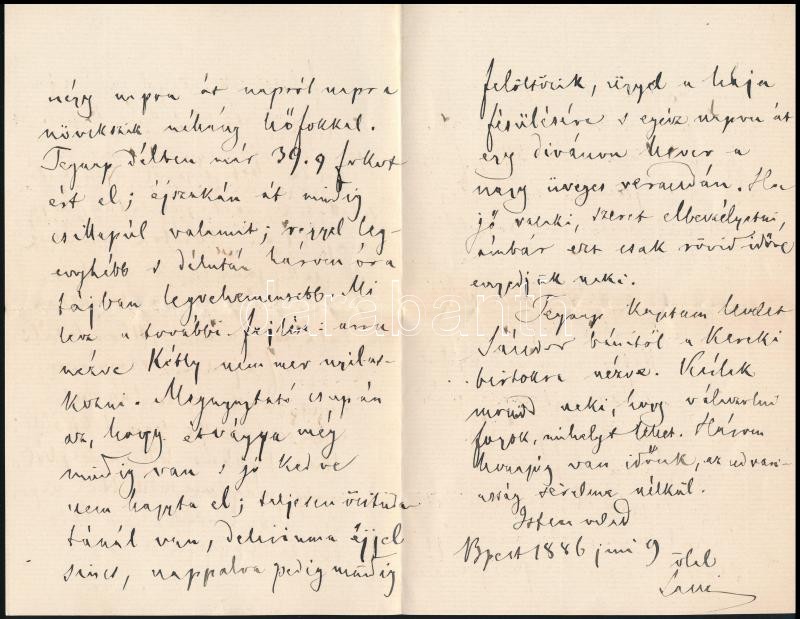 négy napon át napról napra
növekszik néhány hőfokkal.
Tegnap délben már 39.9 fokot
ért el; éjszakán át mindig
csillapúl valamit; reggel leg-
enyhébb s délután három óra
tájban legvehemensebb. Mi
lesz a további fejlés: arra
nézve Kétly nem mer nyilat-
kozni. Megnyugtató csupán
az, hogy étvágya még
mindig van s jó kedve
nem hagyta el; teljesen öntuda-
tánál van, deliriuma éjjel
sincs, nappalra pedig mindig
felöltözik, ügyel a haja
fésülésére s egész napon át
egy divánon hever a
nagy üveges verandán. Ha
jő valaki, szeret elbeszélgetni,
ámbár ezt csak rövid időre
engedjük neki.
Tegnap kaptam levelet
Sándor bánitól a Kereki
birtokra nézve. Kérlek
mondd neki, hogy válaszolni
fogok, mihelyt lehet. Három
hónapig van időnk, az udvari-
asság sérelme nélkül.
Isten veled
Bpest 1886 juni 9
ölel
Laci
darabanth